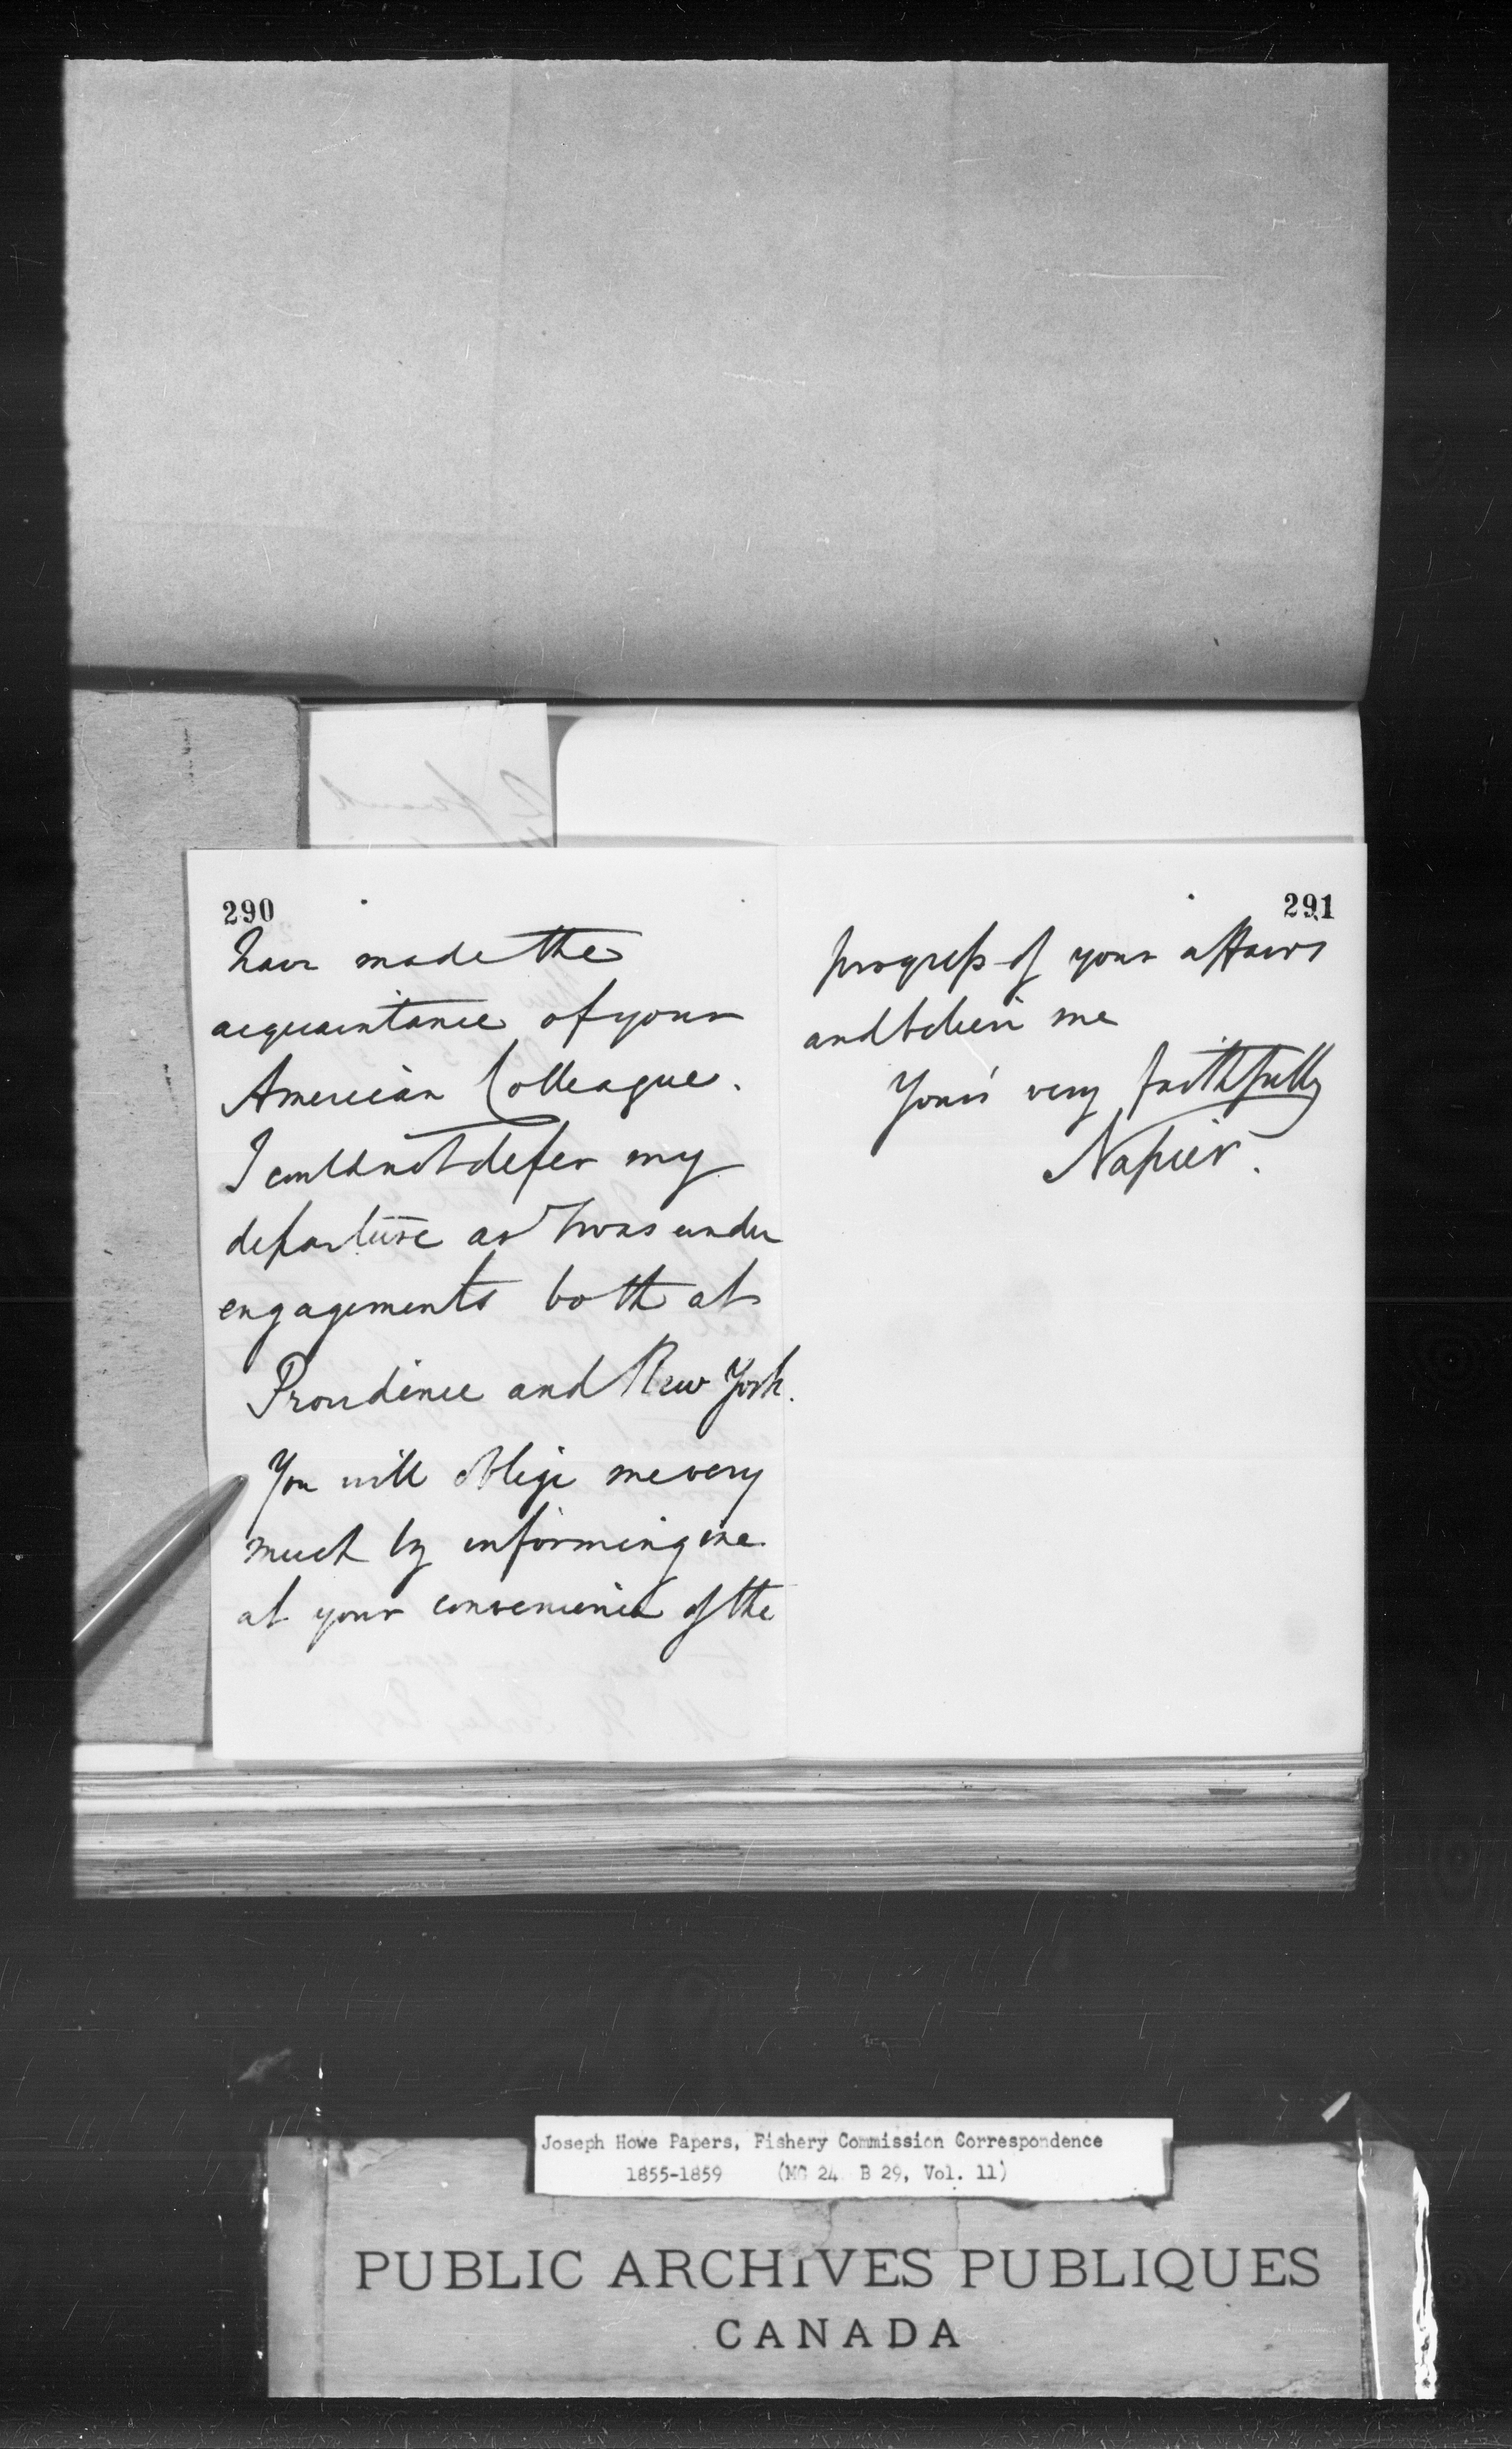 290
have made the
acquaintance of your
American Colleague.
I could not defer my
departure as I was under
engagements both at
Providence and New York.
You will oblige me very
much by informing me
at your convenience of the
291
progress of your affairs
and believe me
Yours very faithfully
Napier.
Joseph Howe Papers, Fishery Commission Correspondence
1855-1859 (MG 24 B 29, Vol. 11)
PUBLIC ARCHIVES PUBLIQUES
CANADA